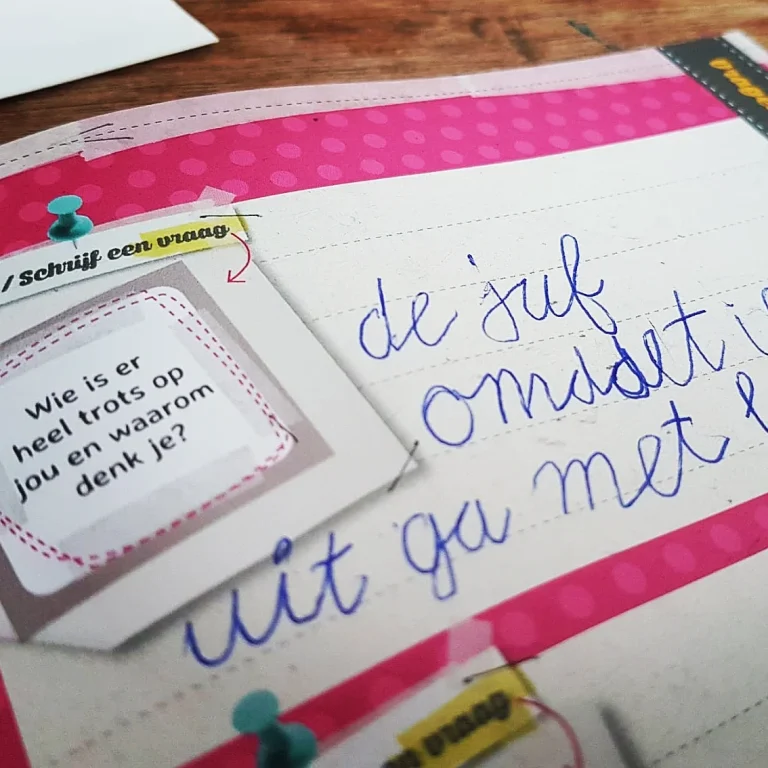 / Schrijf een vraag
Wie is er
heel trots op
jou en waarom
denk je?
de juf
omdat i
uit ga met
vraag